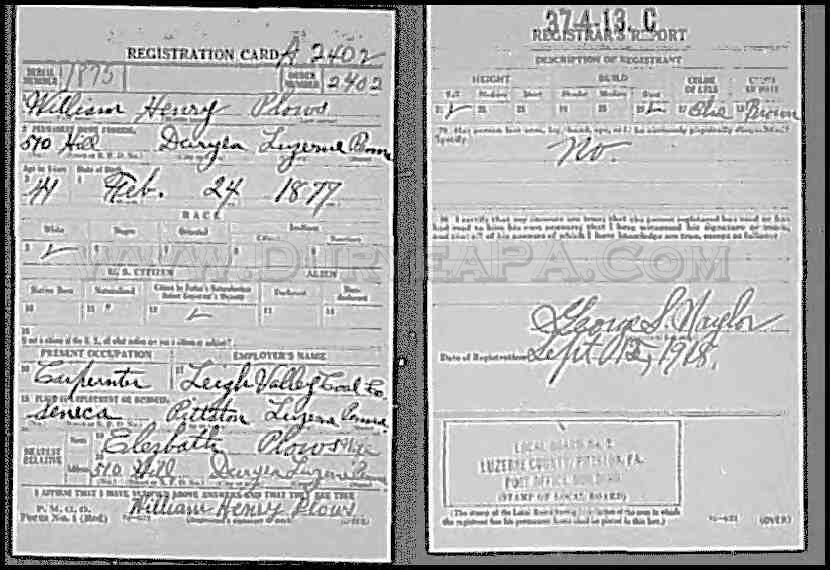 REGISTRATION CARD A 2402
SERIAL NUMBER 1875 ORDER NUMBER 2402
William Henry Plows
2 PERMANENT HOME ADDRESS:
510 Hill Duryea Luzerne Penna
Age in Years Date of Birth
41 Feb. 24 1877
RACE
White Negro Oriental Indian
Citizen
5 ✓ 6 7 8 9
U. S. CITIZEN ALIEN
Native Born Naturalized Citizen by Father's Naturalization Before Registrant's Majority Declarant Non-declarant
10 11 12 ✓ 13 14
15
If not a citizen of the U. S., of what nation are you a citizen or subject?
PRESENT OCCUPATION EMPLOYER'S NAME
16 Carpernter 17 Leigh Valley Coal Co.
18 PLACE OF EMPLOYMENT OR BUSINESS:
Seneca Pittston Luzerne Penna.
NEAREST RELATIVE
Name 19 Elezbath Plows
Address 20 510 Hill Duryea Luzerne Penna
I AFFIRM THAT I HAVE VERIFIED ABOVE ANSWERS AND THAT THEY ARE TRUE
P. M. G. O.
Form No. 1 (Red) William Henry Plows
(OVER)
37-4-13. C
REGISTRAR'S REPORT
DESCRIPTION OF REGISTRANT
HEIGHT BUILD COLOR OF EYES COLOR OF HAIR
Tall Medium Short Slender Medium Stout
21 ✓ 22 23 24 25 26 27 28 Brown
29 Has person lost arm, leg, hand, eye, or is he obviously physically disqualified?
Specify
No.
30 I certify that my answers are true; that the person registered has read or has
had read to him his own answers; that I have witnessed his signature or mark,
and that all of his answers of which I have knowledge are true, except as follows:
WWW.DURYEAPA.COM
George S. Naylor
Date of Registration Sept 12, 1918.
LOCAL BOARD
LUZERNE COUNTY, PITTSTON, PA.
POST OFFICE BUILDING
(STAMP OF LOCAL BOARD)
(The stamp of the Local Board having jurisdiction of the area in which
the registrant has his permanent home shall be placed in this box.)
(OVER)